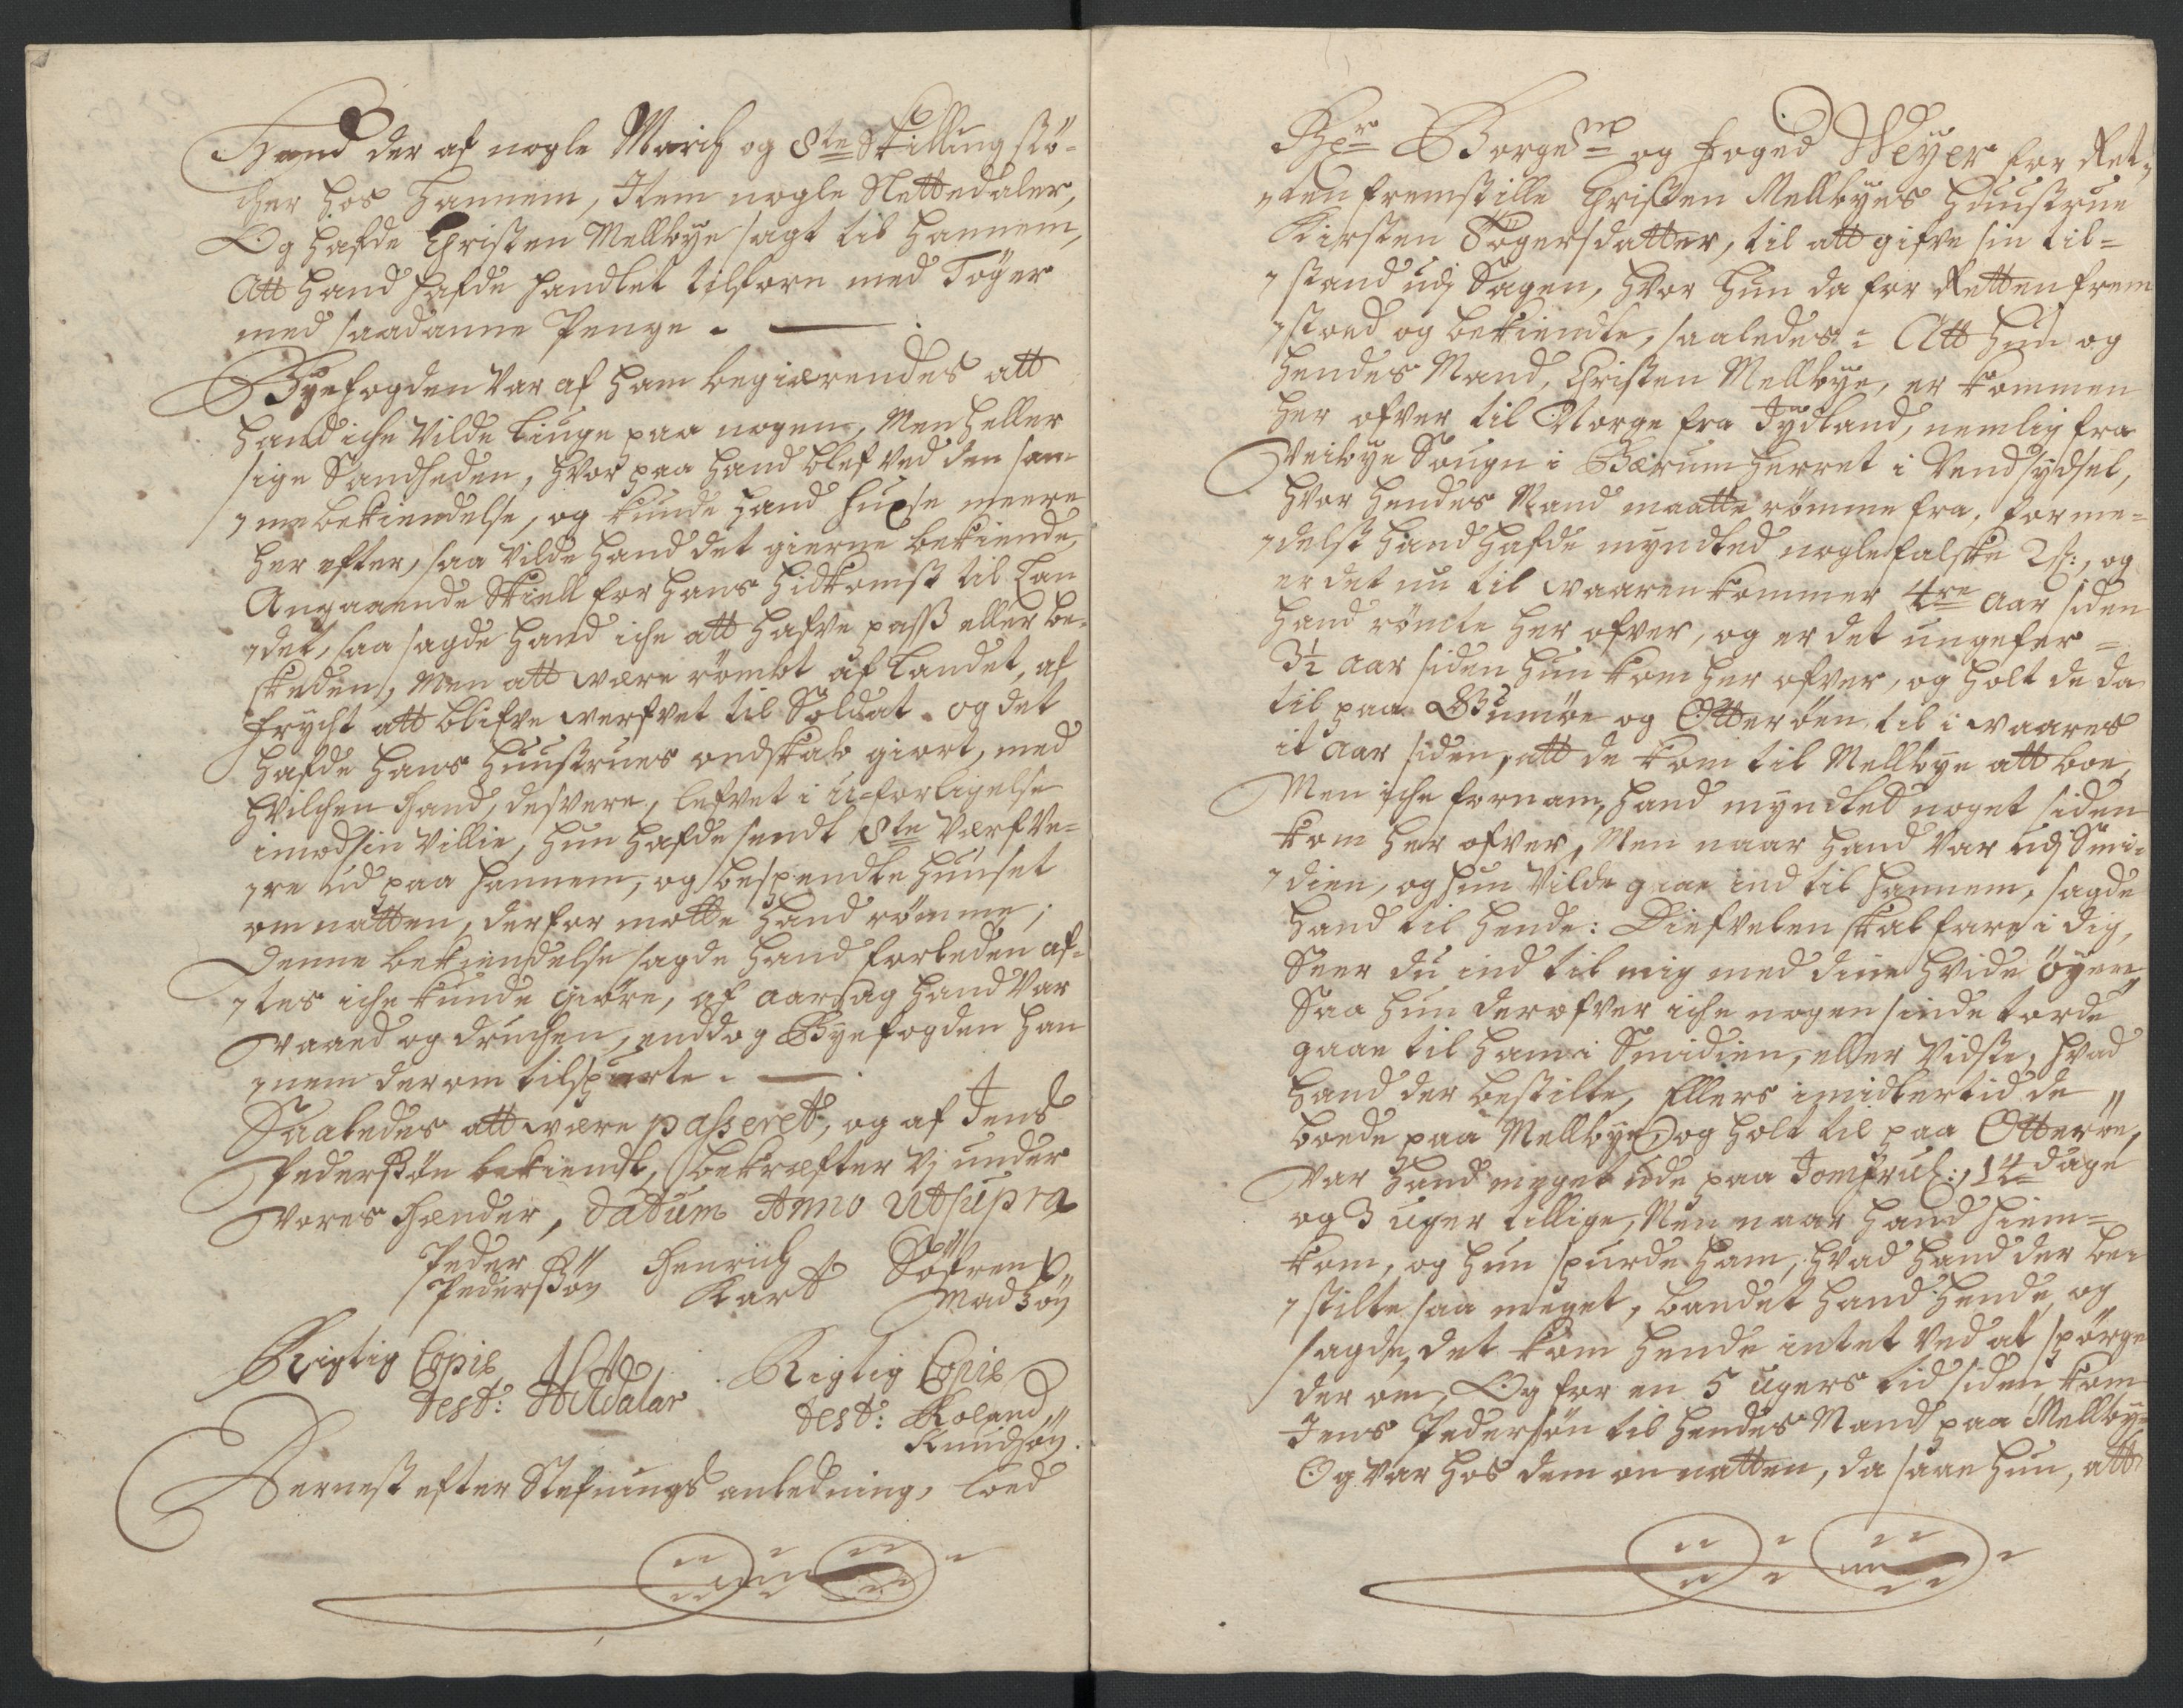 Hand der af nogle March og 8te Skilling stö-
cher hos hannem, Item nogle Slettedaler,
Og hafde Christen Mellbye sagt til hannem,
Att hand hafde handlet tilforn med Töyer
med saadanne Penge.
Byefogden var af ham begiærendes att
hand iche vilde liuge paa nogen, Men heller
sige Sandheden, hvor paa hand blef ved den sam-
me bekiendelse, og kunde hand huxe meere
her efter, saa vilde hand det gierne bekiende,
Angaaende Skiell for hans hidkomst til Lan
det, saa sagde hand iche att hafve pass eller be-
skeden, Men att være römbt af Landet, af
frycht att blifve werfvet til Soldat. og det
hafde hans huustrues ondskab giort, med
hvilchen hand, desvere, lefvet i u-forligelse
imod sin villie, hun hafde sendt 8te værfve-
re ud paa hannem, og bespendte huuset
om natten, derfor motte hand römme;
Denne bekiendelse sagde hand forleden af-
tes iche kunde giöre, af aarsag hand var
vaaed og druchen, enddog Byefogden han
nem derom tilspurte.
Saaledes att være passeret, og af Jens
Pederssön bekiendt, bekræfter vj under
vores hænder, Datum Anno utsupra
Peder Henrich Söfren
Pederssön Kart Madzön
Rigtig Copie Rigtig Copie
test: Adalar test: Roland
Knudsön.
Dernest efter Stefnings anledning, loed
Borge og foged Weyer for Ret-
ten fremstille Christen Mellbyes huustrue
Kirsten Pogersdatter, til att gifve sin til-
stand udj Sagen, hvor hun da for Retten frem
stoed og bekiendte, saaledes: Att hun og
hendes Mand, Christen Mellbye, er kommen
her ofver til Norge fra Jydland, nemlig fra
Veibye Sougn i Bærum herret i Vendsydsel,
hvor hendes Mand maatte römme fra, forme-
delst hand hafde myndted nogle falske 2 s:, og
er det nu til vaaren kommer 4re aar siden
hand römte her ofver, og er det ungefer
3½ aar siden hun kom her ofver, og holt de da
til paa Gumöe og Otteröen til i vaares
it aar siden, att de kom til Mellbye att boe,
Men iche fornam, hand myndted noget siden
kom her ofver, Men naar hand var udj Smi-
dien, og hun vilde gaae ind til hannem, sagde
hand til hende: Diefvelen skal fare i dig,
Seer du ind til mig med dine hvide öyen,
Saa hun derofver iche nogen sinde torde
gaae til ham i Smidien, eller vidste, hvad
hand der bestilte, Ellers imidlertid de
boede paa Mellbye, og holt til paa Otteröe,
var hand meget ude paa Jomfrul:, 14 dage
og 3 uger tillige, Men naar hand hiem-
kom, og hun spurde ham, hvad hand der be-
stilte saa meget, bandet hand hende og
sagde, det kom hende intet ved at spörge
der om, Og for en 5 ugers tid siden kom
Jens Pedersön til hendes Mand paa Mellby-
Og var hos dem om natten, da saae hun, att